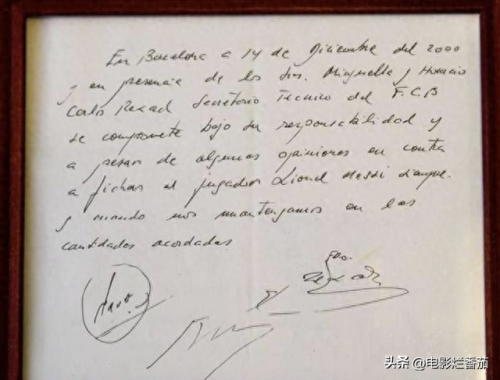 En Barcelona a 14 de Diciembre del 2000
y en presencia de los Srs. Minguella y Horacio
Carlos Rexach Secretario Técnico del F.C.B
se compromete bajo su responsabilidad y
a pesar de algunas opiniones en contra
a fichar al jugador Lionel Messi siempre
y cuando nos mantengamos en las
cantidades acordadas
头条 @电影烂番茄